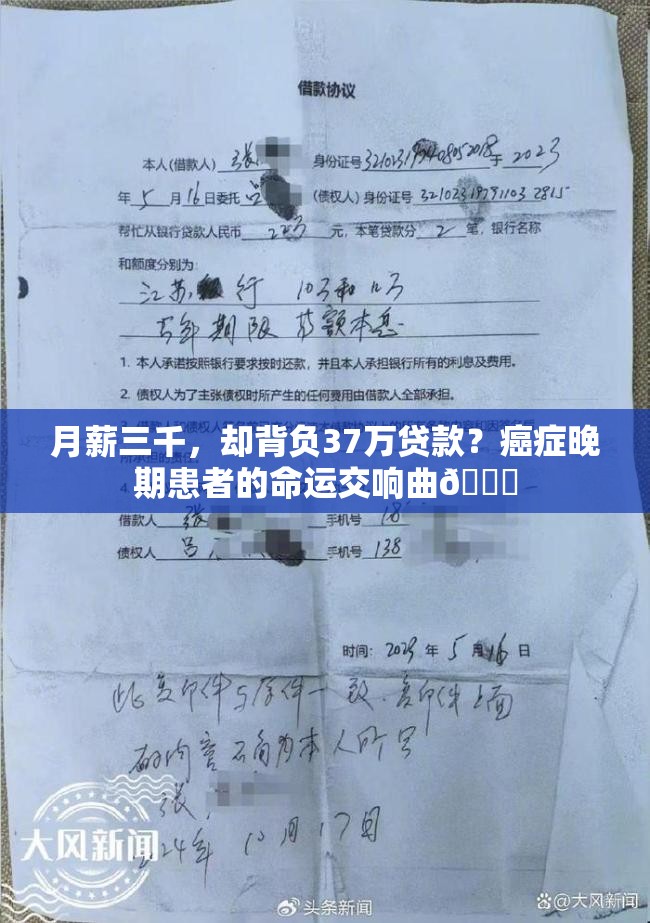 借款协议
本人(借款人) 张 身份证号 于 2023
年 5 月 16 日委托 吕 (债权人)身份证号 3210231979110 3 2815
帮忙从银行贷款人民币 22万 元，本笔贷款分 2 笔，银行名称
和额度分别为:
江苏银行 10万和12万
五年期限 等额本息
1. 本人承诺按照银行要求按时还款，并且本人承担银行所有的利息及费用。
2. 债权人为了主张债权时所产生的任何费用由借款人全部承担。
月薪三千，却背负37万贷款？癌症晚
期患者的命运交响曲ð
借款人 张 手机号 18
债权人 吕 手机号 138
时间: 2023 年 5 月 16 日
此复印件与原件一致.复印件上面
的内容
本人所写
张
2024年 10月17日
大风新闻
头条新闻
@大风新闻